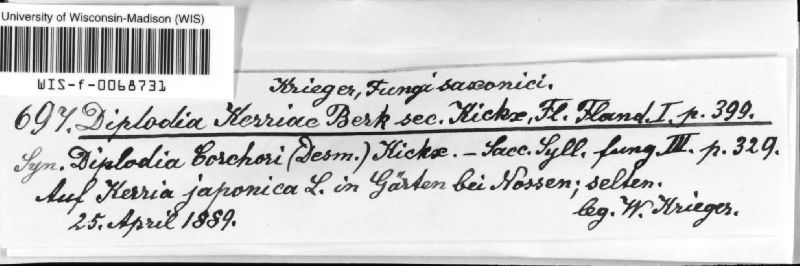 University of Wisconsin-Madison (WIS)
WIS-f-0068731
Krieger, Fungi saxonici.
697. Diplodia Kerriae Berk sec. Kickx, Fl. Fland. I. p. 399.
Syn. Diplodia Corchori (Desm.) Kickx. – Sacc. Syll. fung. III. p. 329.
Auf Kerria japonica L. in Gärten bei Nossen; selten.
25. April 1889.
leg. W. Krieger.